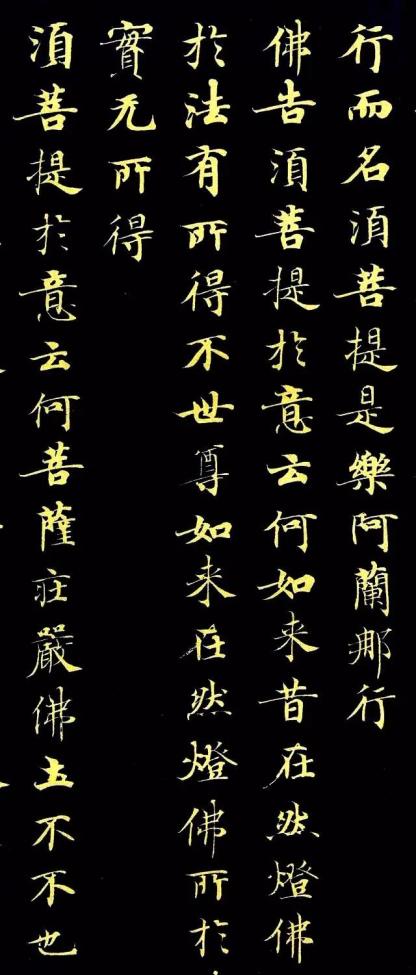 行而名須菩提是樂阿蘭那行
佛告須菩提於意云何如来昔在然燈佛
於法有所得不世尊如来在然燈佛所於
實无所得
須菩提於意云何菩薩莊嚴佛土不不也